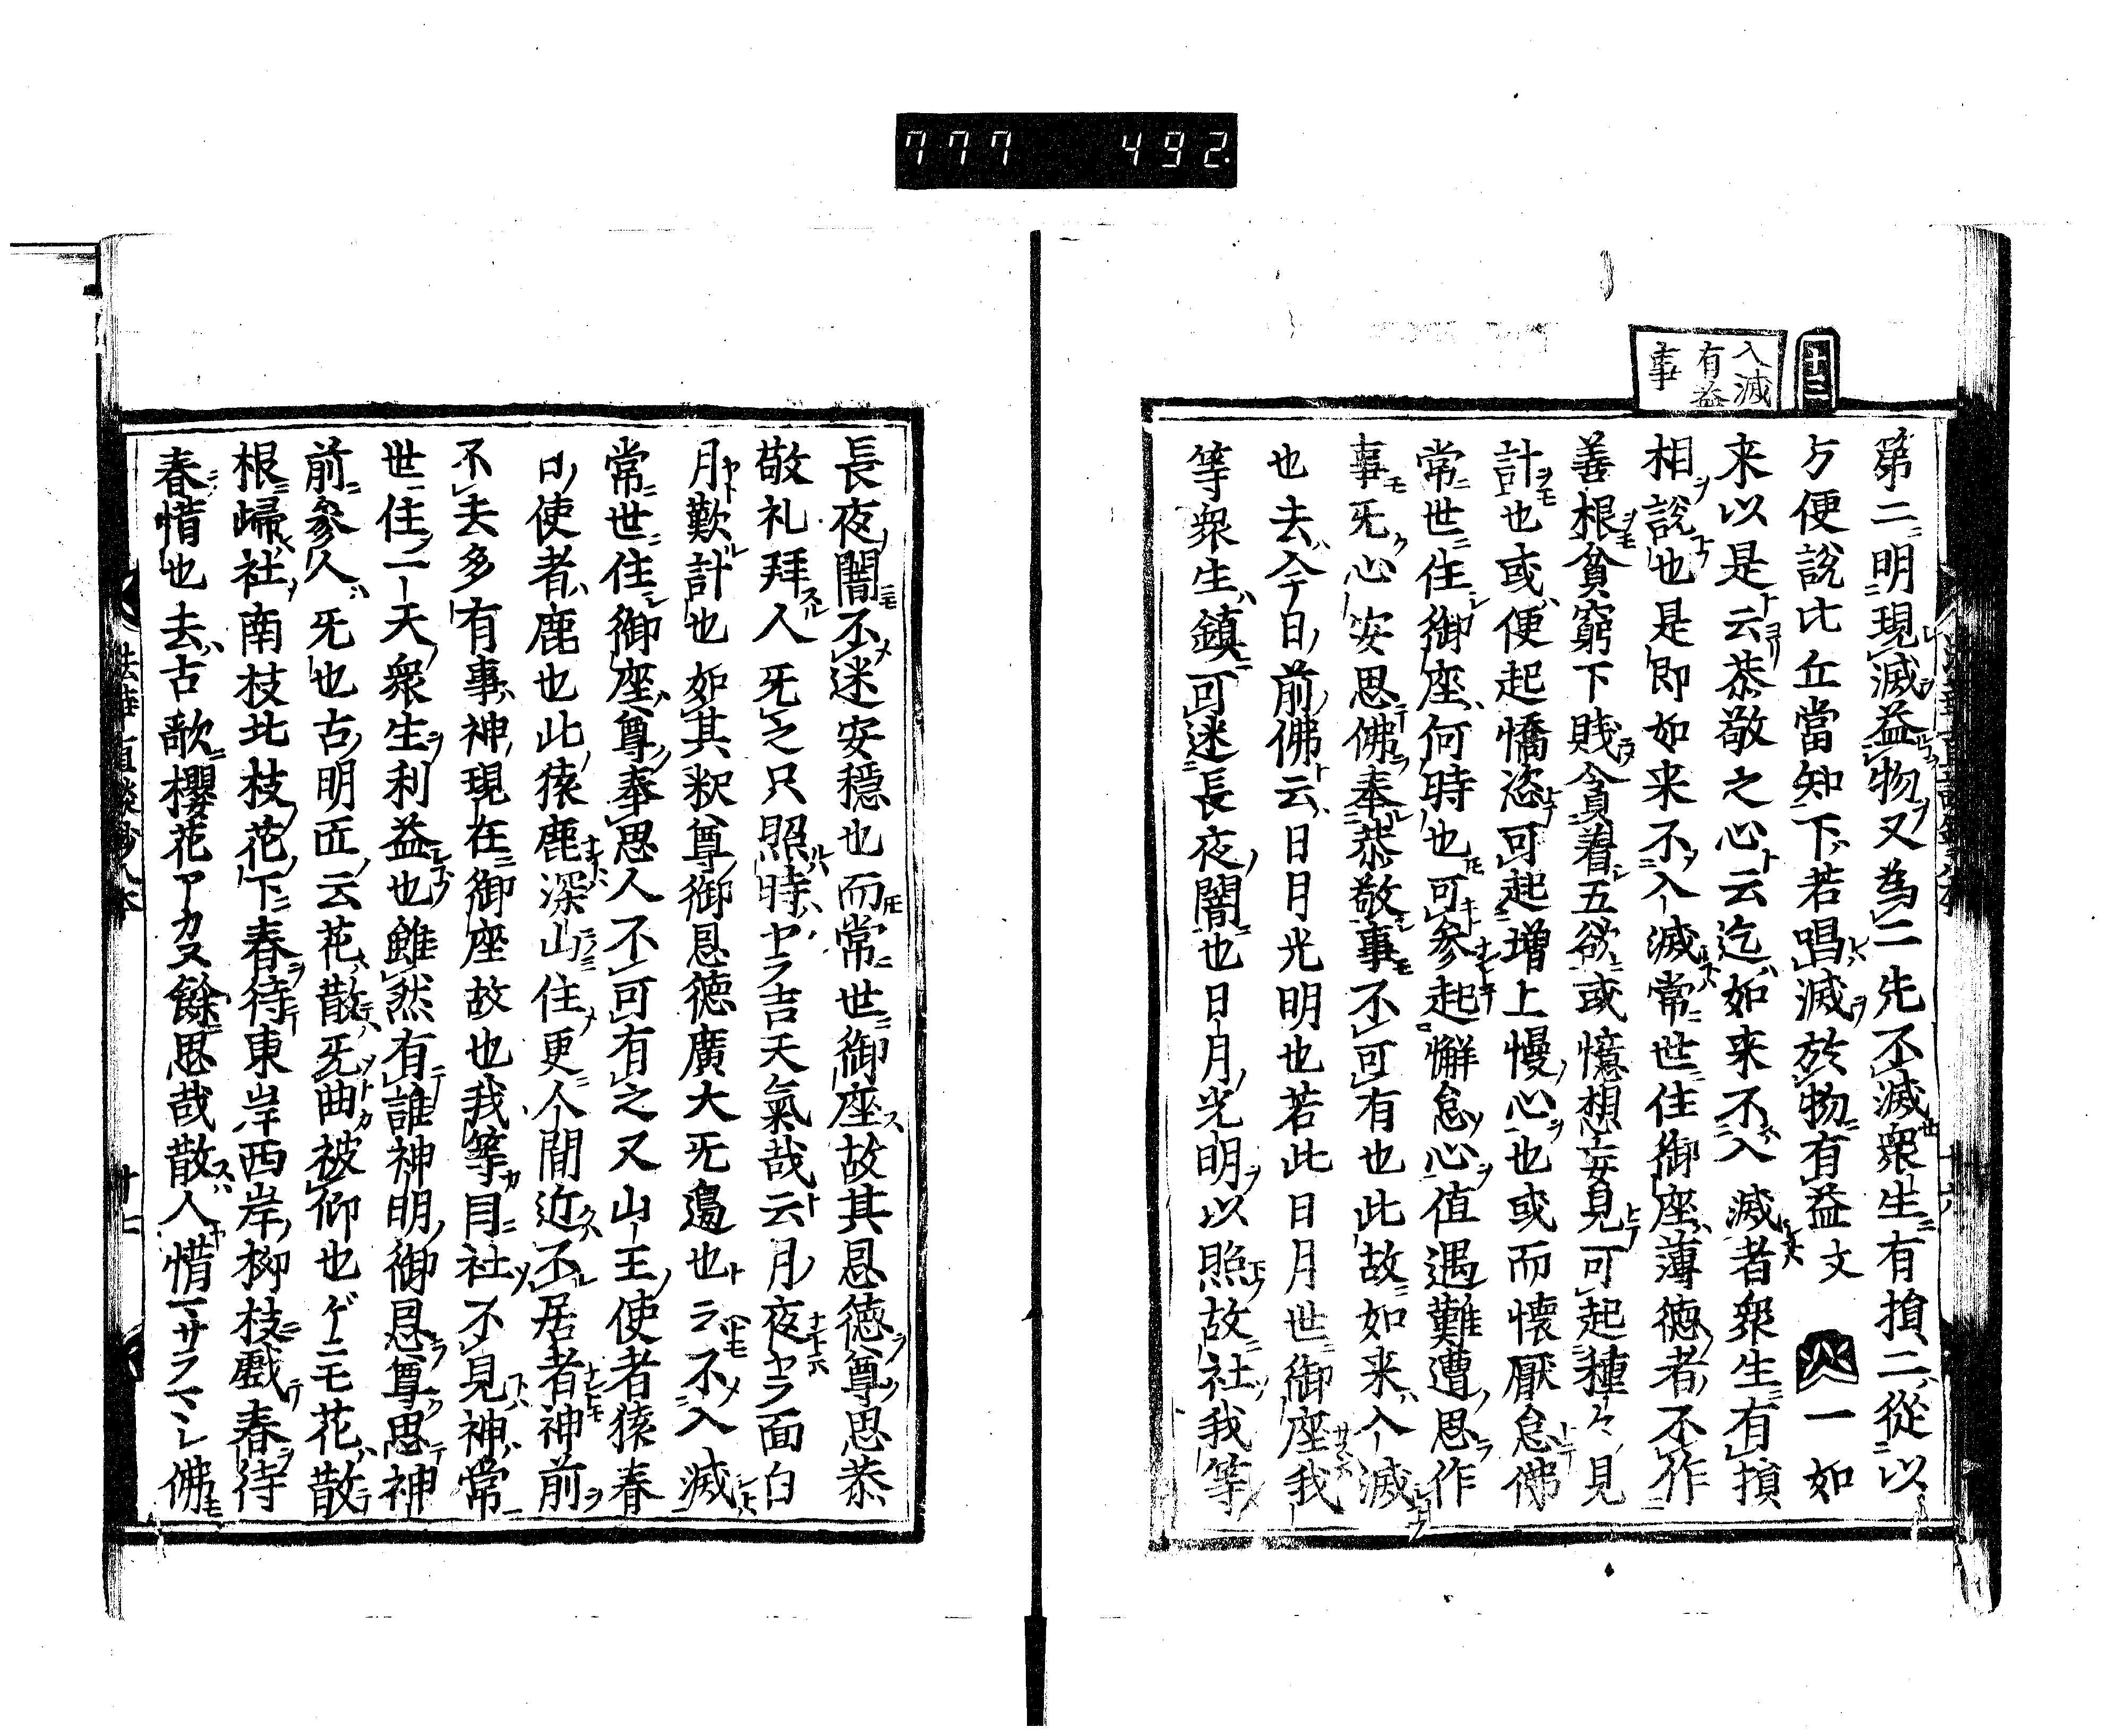 777 492
十二
入滅
有益
事
第二明現滅益物又為二先不滅衆生有損二從以
方便說比丘當知下若唱滅於物有益文 一如
来以是云恭敬之心云迄如来不入滅者衆生有損
相說也是即如来不入滅常世住御座薄徳者不作
善根貧窮下賎貪着五欲或憶想妄見可起種々見
計也或便起憍恣可起増上慢心也或而懐厭怠佛
常世住御座何時也可参起懈怠心値遇難遭思作
事旡心安思佛奉恭敬事不可有也此故如来入滅
也去今日前佛云日月光明也若此日月世御座我
等衆生鎮可迷長夜闇也日月光明以照故社我等
長夜闇不迷安穏也而常世御座故其恩徳尊思恭
敬礼拜人旡之只照時ヤラ吉天氣哉云月夜ヤラ面白
月歎計也如其釈尊御恩徳廣大旡邉也ラ不入滅
常世住御座尊奉思人不可有之又山王使者猿春
日使者鹿也此猿鹿深山住更人間近不居者神前
不去多有事神現在御座故也我等目社不見神常
世住一天衆生利益也雖然有誰神明御恩尊思神
前参人旡也古明匠云花散旡曲被仰也ゲニモ花散
根帰社南枝北枝花下春待東岸西岸柳枝戯春待
春惜也去古歌櫻花アカヌ餘思哉散人惜マサラマシ佛